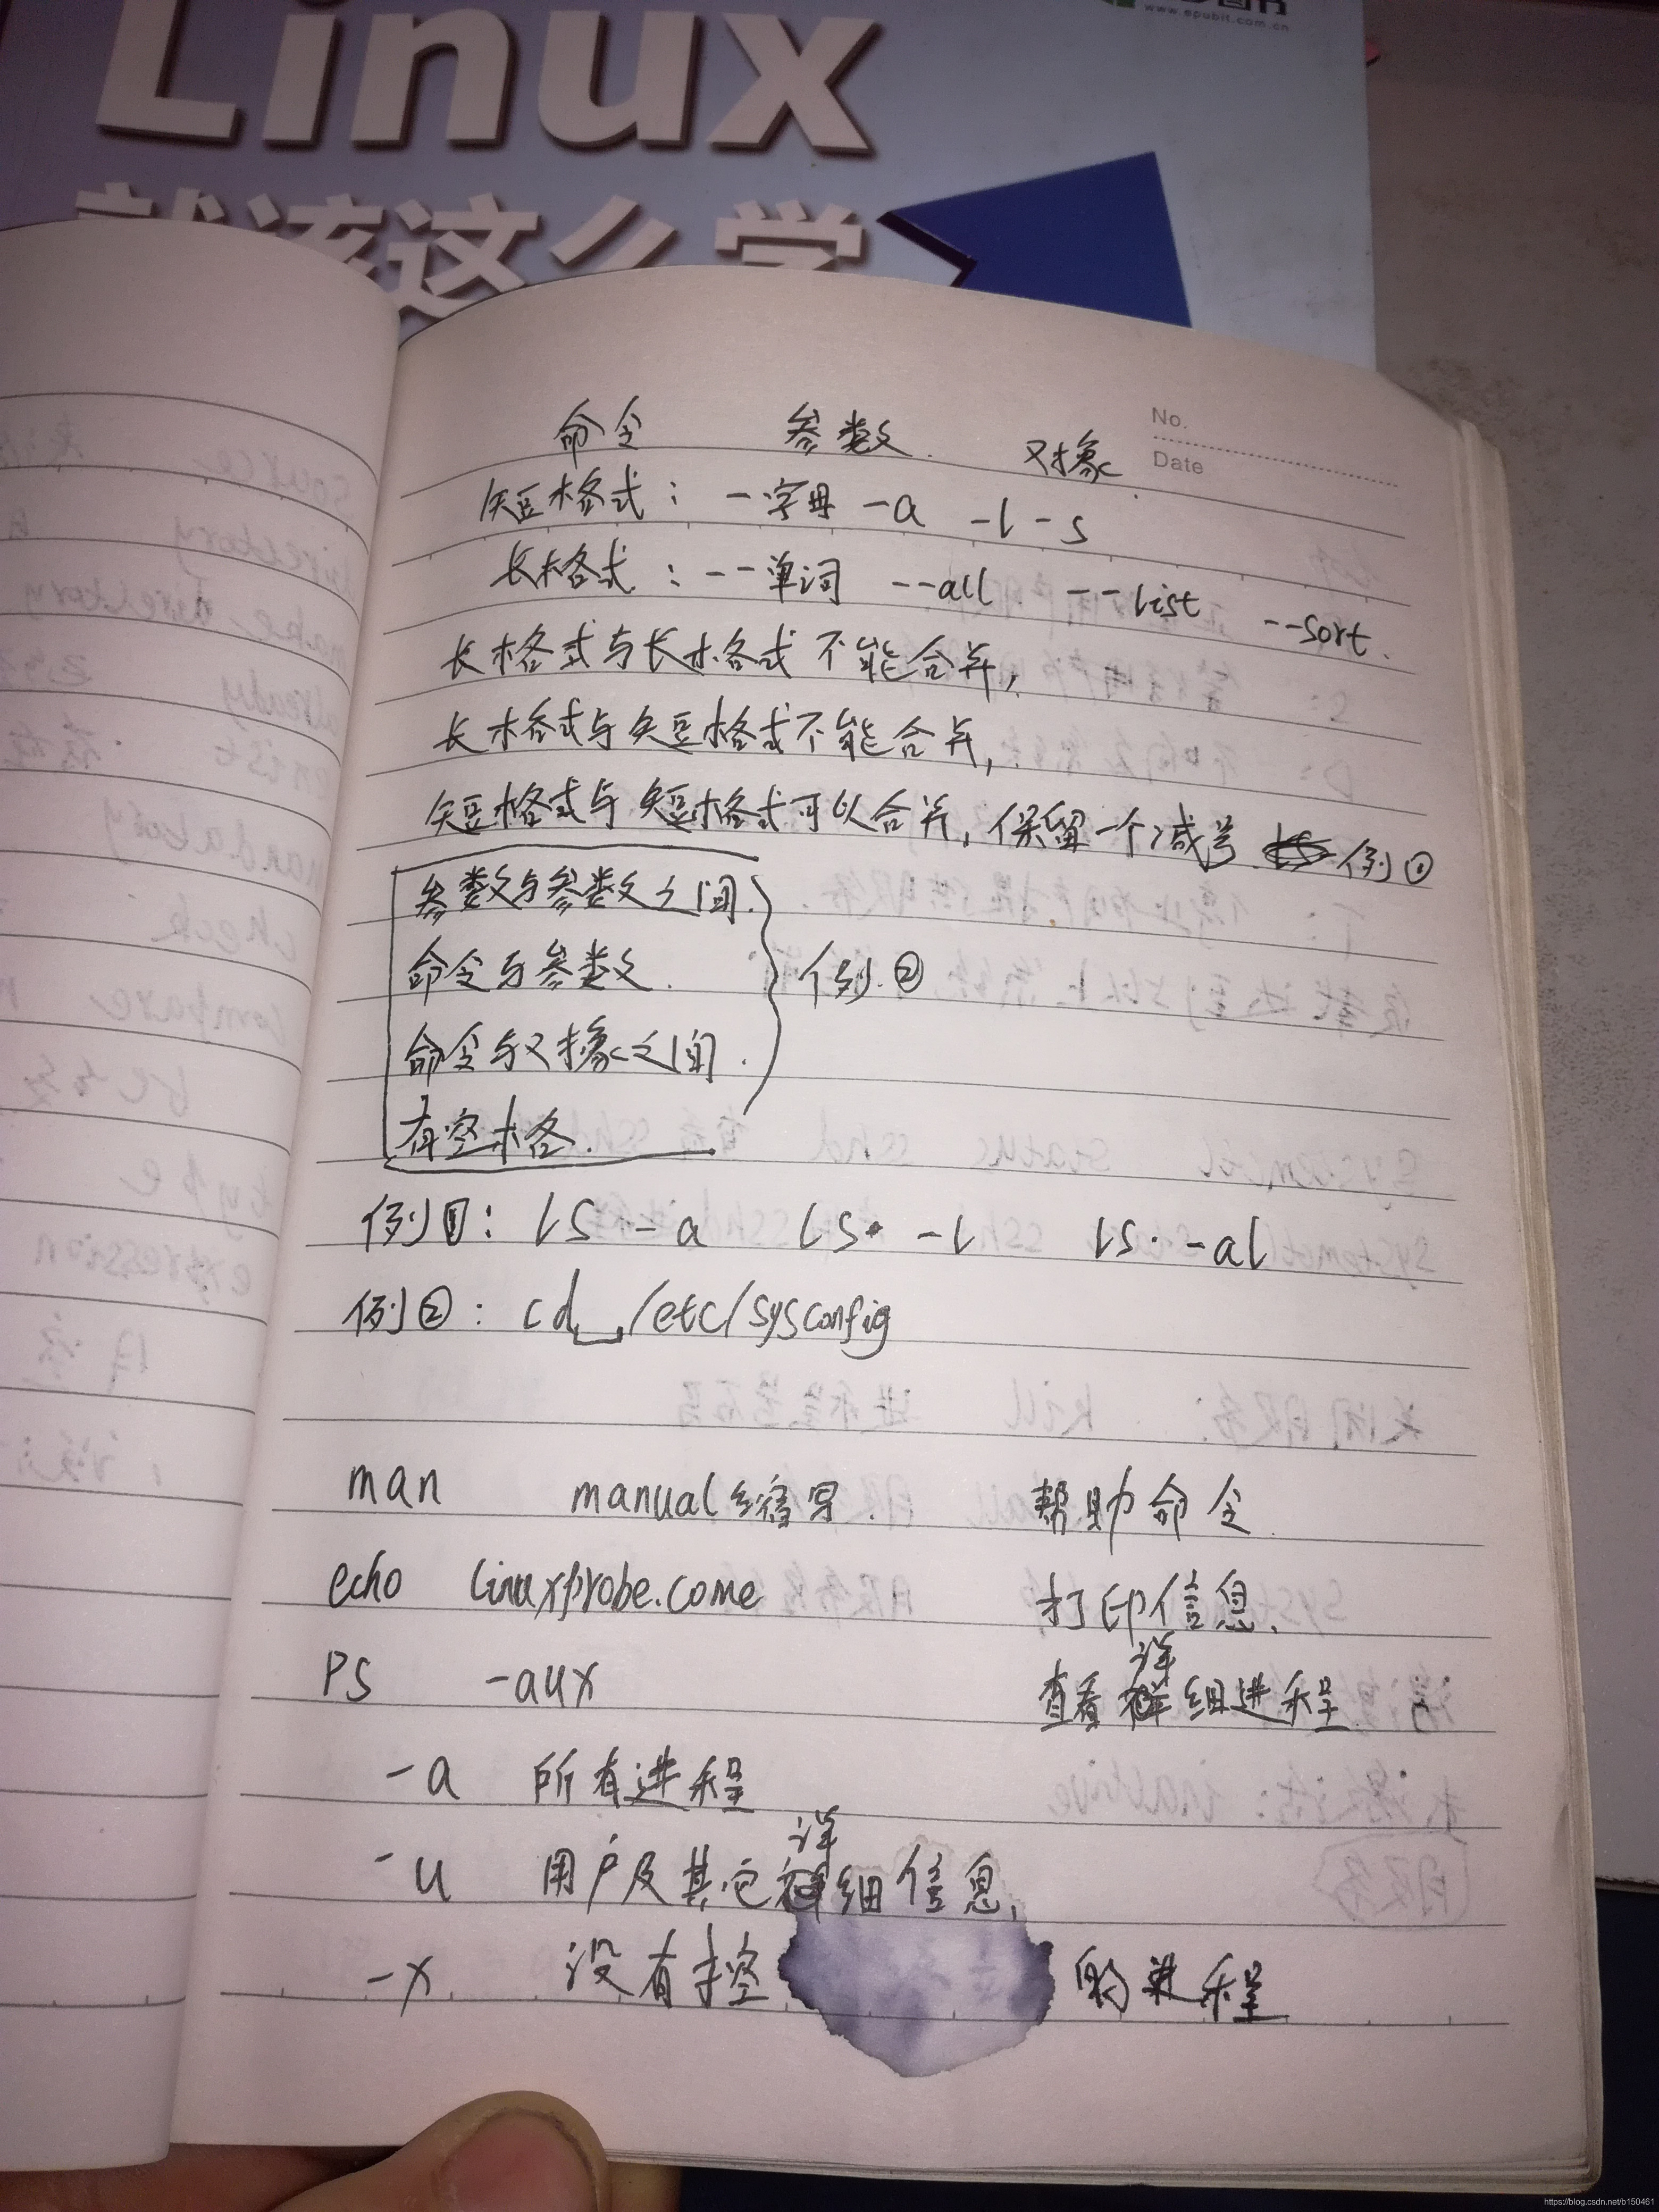 Linux
就该这么学
www.epubit.com.cn
No.
Date
命令 参数 对象
短格式: -字母 -a -l -s
长格式: --单词 --all --list --sort.
长格式与长格式不能合并,
长格式与短格式不能合并,
短格式与短格式可以合并,保留一个减号 例①
参数与参数之间.
命令与参数.
命令与对象之间.
有空格.
例②
例①: ls -a ls -l ls -al
例②: cd /etc/sysconfig
man manual缩写. 帮助命令.
echo linuxprobe.come 打印信息.
PS -aux 查看详细进程.
-a 所有进程
-u 用户及其它详细信息.
-x 没有控 的进程
https://blog.csdn.net/b150461